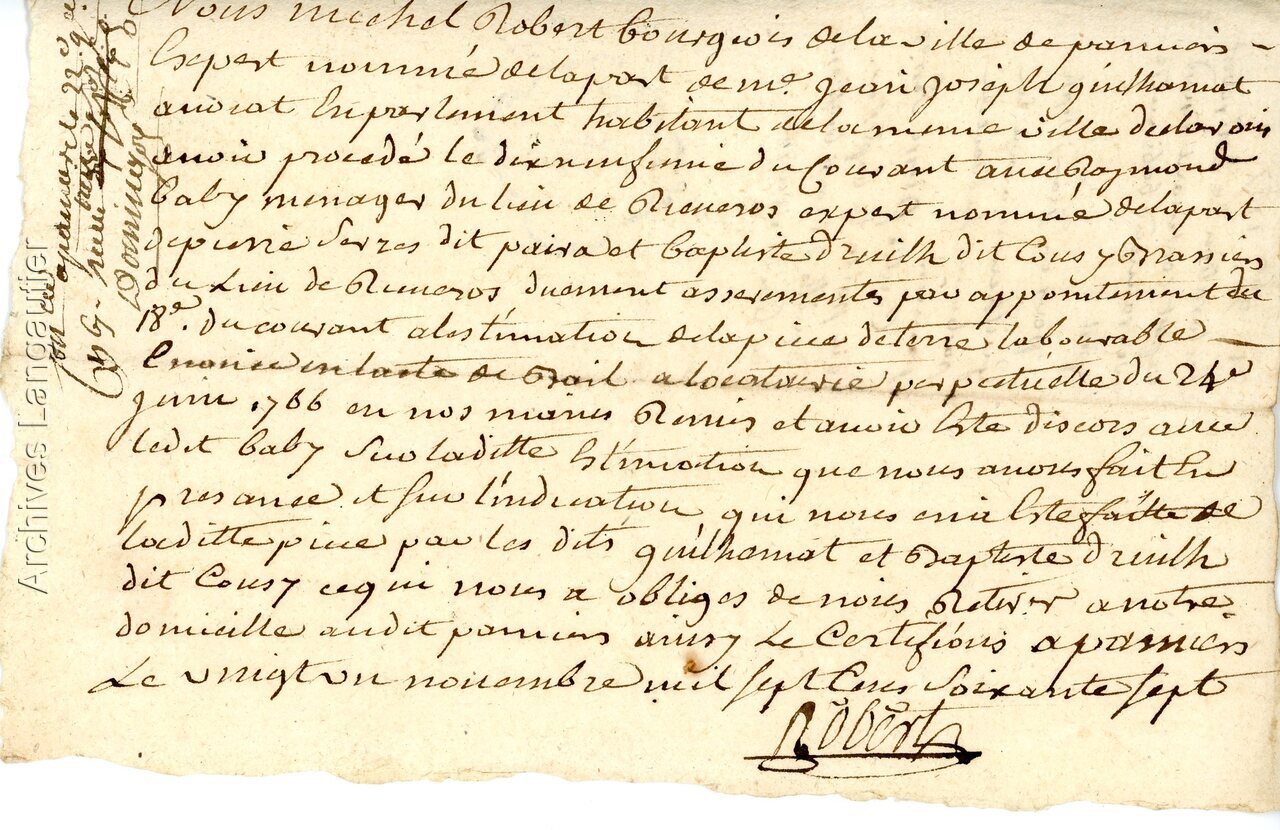 Nous michel Robert bourgeois delaville depamiers
Expert nommé delapart de me. Jean Joseph guilhamat
avocat Enparlement habitant delameme ville declarons
avoir procedé le dixneufieme du Courant avec Raymond
baby menager du lieu de Rieucros expert nommé delapart
depierre Serres dit paira et baptiste druilh dit Cousy Brassiers
du Lieu de Rieucros duement assermentés par appointement du
18e. du courant a lestimation delapiece deterre labourable
Enoncée en lacte de Bail a locatairie perpetuelle du 24e
juin 1766 en nos mains Remis et avoir Este discors avec
ledit baby Sur laditte Estimation que nous avons fait En
presance et sur l'indication qui nous en a Este faitte de
laditte piece par les dits guilhemat et Baptiste druilh
dit Cousy ce qui nous a obliges de nous Retirer a notre
domicille audit pamiers ainsy Le Certifions a pamiers
Le vingt un novembre mil sept Cens Soixante sept
Robert
apamiers le 22e 9bre
Reçu
Domingon
Archives Langautier